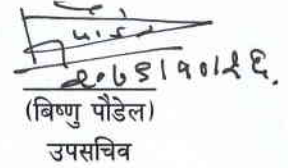 २०७६।१०।१६.
(बिष्णु पौडेल)
उपसचिव